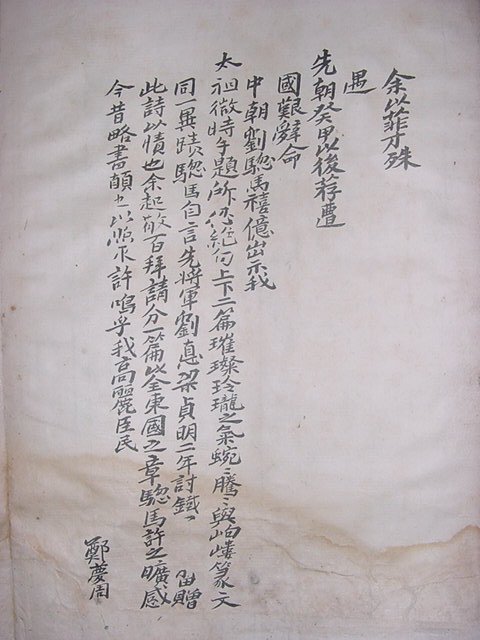 余以菲才殊
遇
先朝癸甲以後荐遭
國艱辭命
中朝劉驄馬禧億出示我
太祖微時手題所作絕句上下二篇璀璨玲瓏之氣蜿〻騰〻與岣嶁篆文
同一異蹟驄馬自言先將軍劉惪梁貞明二年討鐵〻留贈
此詩以情也余起敬百拜請分一篇以全東國之章驄馬許之曠感
今昔略書顛也以順不許嗚乎我高麗臣民
鄭慶周